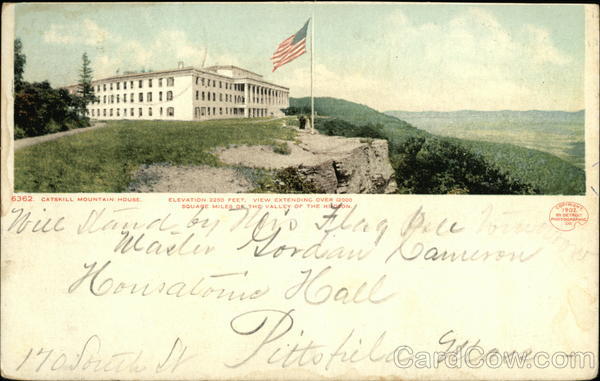 6362. CATSKILL MOUNTAIN HOUSE. ELEVATION 2250 FEET. VIEW EXTENDING OVER 12000
SQUARE MILES OF THE VALLEY OF THE HUDSON.
COPYRIGHT
1902
BY DETROIT
PHOTOGRAPHIC
CO.
Will Stand by this Flag Pole
Master Gordon Cameron
Housatonic Hall
Pittsfield Mass
170 South St
CardCow.com